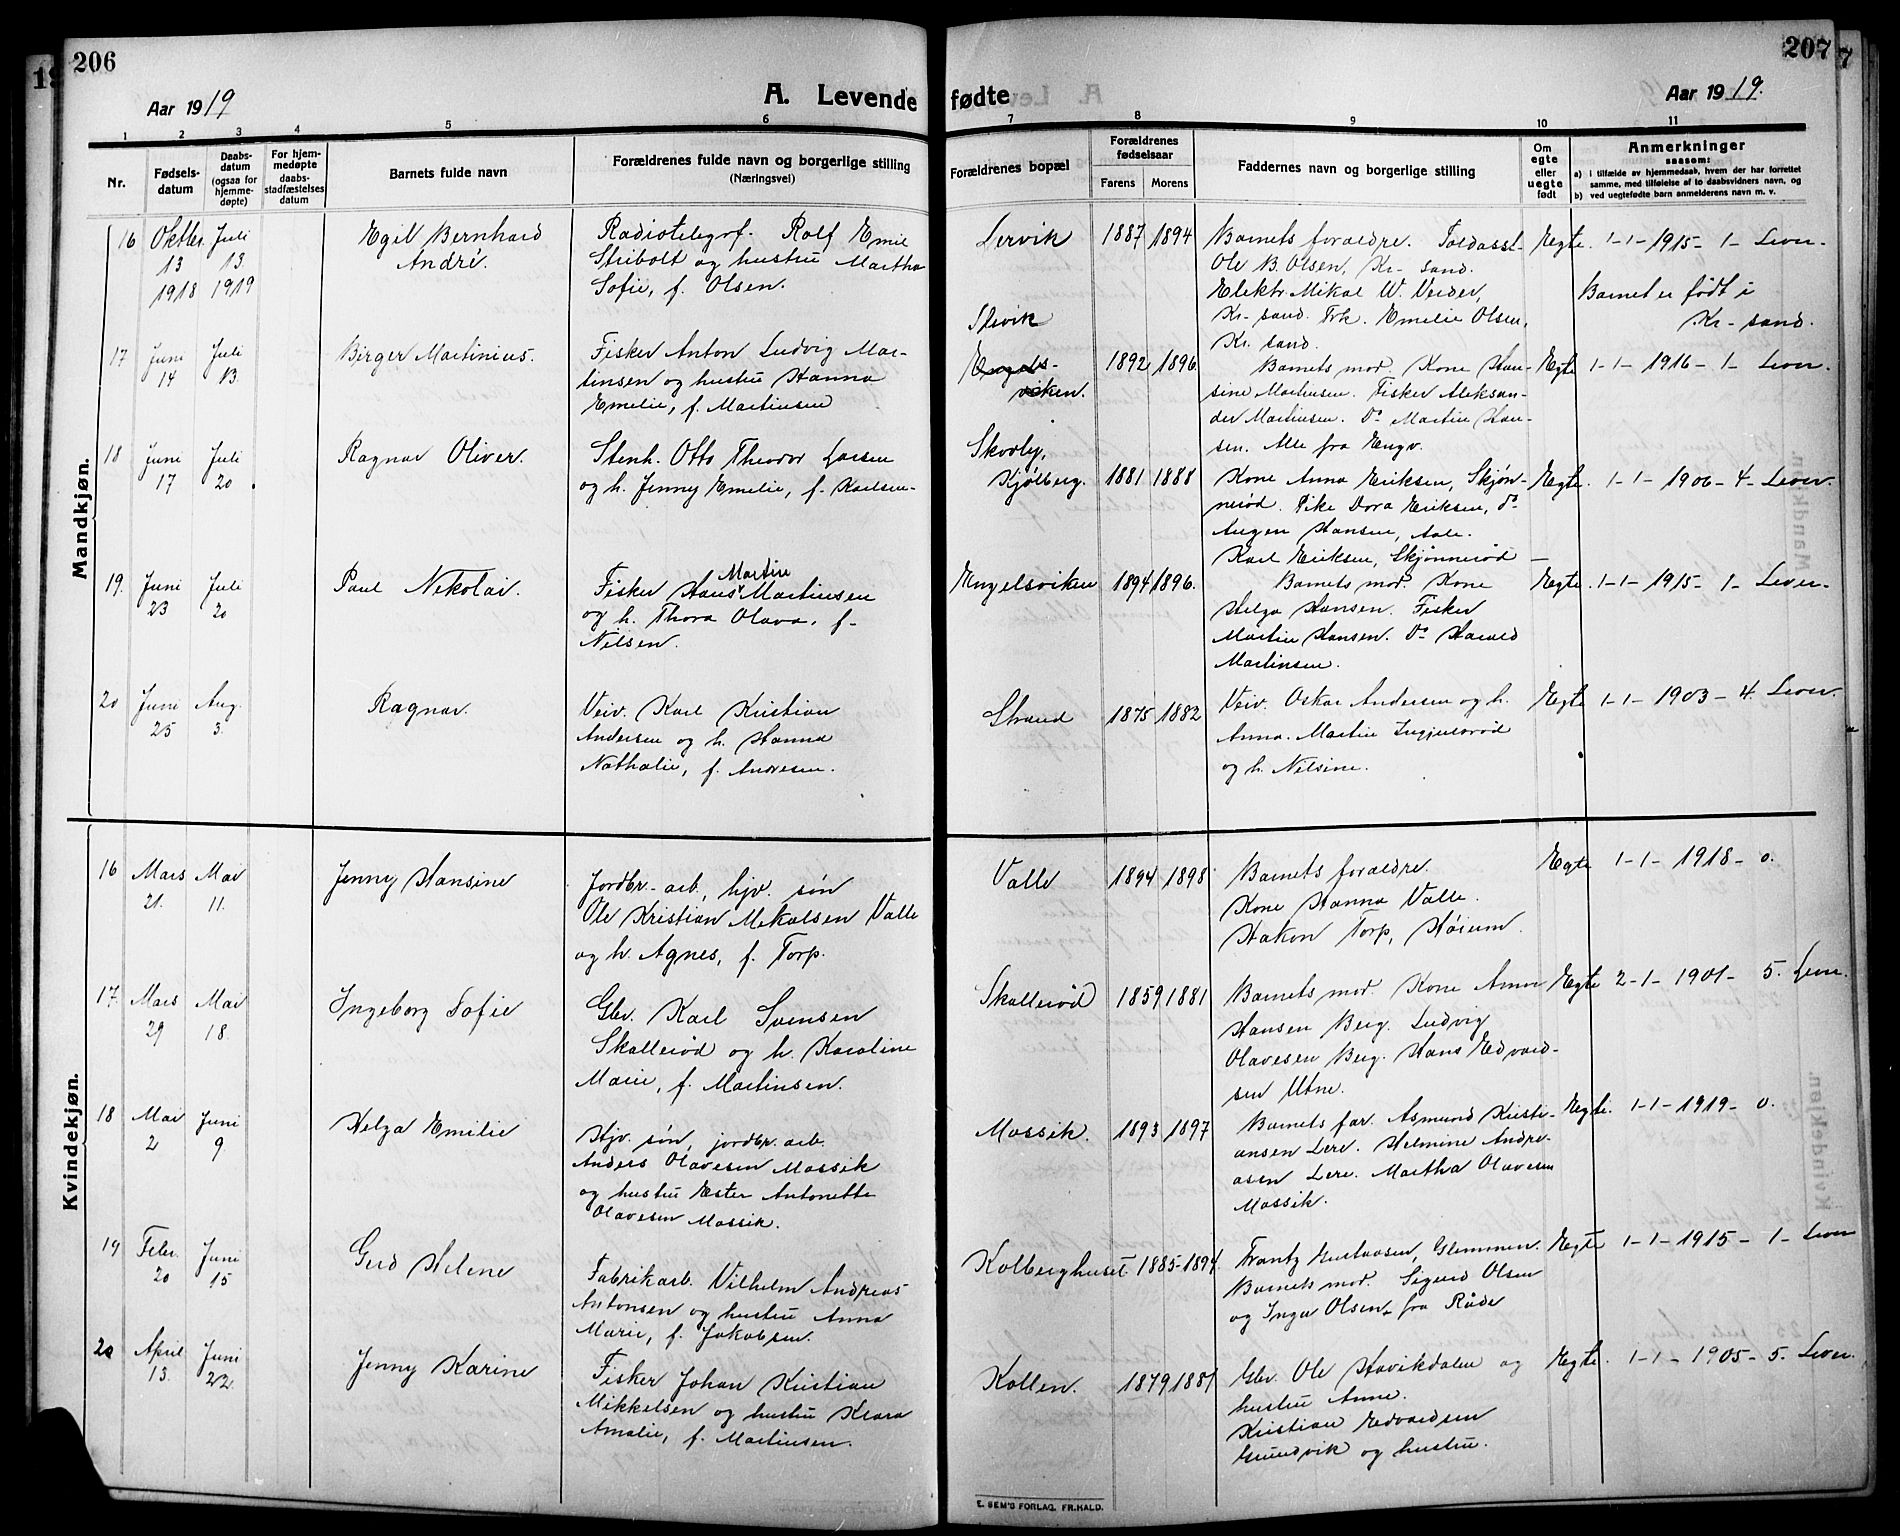 206
Aar 1919
A. Levende
1 2 3 4 5 6
Nr.
Fødsels-
datum
Daabs-
datum
(ogsaa for
hjemme-
døpte)
For hjem-
medøpte
daabs-
stadfæstelses
datum
Barnets fulde navn
Forældrenes fulde navn og borgerlige stilling
(Næringsvei)
Mandkjøn.
16 Oktbr. Juli Egil Bernhard Radiotelegrf. Rolf Emil
13 13. André. Stribolt og hustru Martha
1918 1919 Sofie, f. Olsen.
17 Juni Juli Birger Martinius. Fisker Anton Ludvig Mar-
14 13. tinsen og hustru Hanna
Emelie, f. Martinsen
18 Juni Juli Ragnar Oliver. Stenh. Otto Theodor Larsen
17 20 og h. Jenny Emelie, f. Karlsen-
Martin
19. Juni Juli Paul Nikolai. Fisker Hans Martinsen
23 20 og h. Thora Olava, f-
Nilsen.
20 Juni Aug. Ragnar. Veiv. Karl Kristian
25 3. Andersen og h. Hanna
Nathalie, f. Andresen.
Kvindekjøn.
16 Mars Mai Jenny Hansine Jordbr- arb, hjv. søn
21. 11. Ole Kristian Mikalsen Valle
og h. Agnes, f. Torp.
17. Mars Mai Ingeborg Sofie Gbr. Karl Svensen
29 18. Skallerød og h. Karoline
Marie, f. Martinsen.
18 Mai Juni Helga Emilie Hjv. søn, jordbr. arb.
2 9. Anders Olavesen Mossik
og hustru Ester Antonette
Olavesen Mossik.
19 Febr. Juni Gerd Helene Fabrikarb. Vilhelm Andreas
20 15 Antonsen og hustru Anna
Marie, f. Jakobsen.
20 April Juni Jenny Karine Fisker Johan Kristian
13. 22. Mikkelsen og hustru Klara
Amalie, f. Martinsen.
207
fødte
Aar 1919.
7 8 9 10 11
Forældrenes bopæl
Forældrenes
fødselsaar
Farens Morens
Faddernes navn og borgerlige stilling
Om
egte
eller
uegte
født
Anmerkninger
saasom:
a) i tilfælde av hjemmedaab, hvem der har forrettet
samme, med tilføielse af to daabsvidners navn, og
b) ved uegtefødte barn anmelderens navn m. v.
Lervik 1887 1894 Barnets foraeldre. Toldasst- Egte. 1-1-1915-1-Lever-
Ole B. Olsen, Kr-sand.
Elektr Mikal W. Barnet er født i
Kr-sand. Frk. Emelie Olsen, Kr-sand.
Kr. sand.
Slevik
Engels-
viken. 1892 1896 Barnets mod. Kone Han- Egte 1-1-1916-1-Lever.
sine Martinsen. Fisker Aleksan-
der Martinsen. Do Martin Han-
sen. Alle fra Engv.
Skovly,
Kjølberg. 1881 1888 Kone Anna Eriksen, Skjøn- Egte. 1-1-1906-4-Lever.
nerød. Pike Dora Eriksen, do
Hansen,
Karl Eriksen, Skjønnerød
Engelsviken 1894 1896. Barnets mod. Kone Egte. 1-1-1915-1-Lever-
Helga Hansen. Fisker
Martin Hansen. Do Harald
Martinsen.
Strand 1875 1882 Veiv. Oskar Andersen og h. Egte 1-1-1903-4. Lever.
Anna. Martin
og h. Nilsine.
Valle 1894 1898 Barnets foraeldre. Egte 1-1-1918-0.
Kone Hanna Valle.
Hakon Torp, Høium.
Skallerød 1859 1881 Barnets mod Kone Anna Egte 2-1-1901-5. Lever.
Hansen Berg. Ludvig
Olavesen Berg. Hans Edvard-
sen Utne.
Mossik. 1893 1897 Barnets far. Asmund Kristi- Egte. 1-1-1919-0.
ansen Lere. Helmine Andre-
asen Lere. Martha Olavesen
Mossik.
Kolberghuset 1885-1894. Frantz Gustavsen, Glemmen. Egte 1-1-1915-1-Lever
Barnets mod. Sigurd Olsen
og Inga Olsen, fra Råde
Kollen. 1879 1881 Gbr. Ole Havikdalen og Egte. 1-1-1905-5. Lever.
hustru Anne.
Kristian Edvardsen
og hustru.
E. SEM'S FORLAG, FR.HALD.